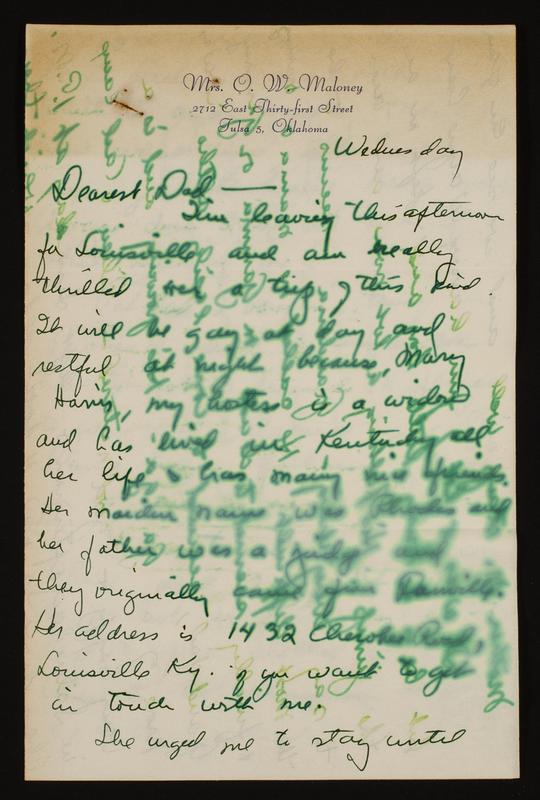 Mrs. O. W. Maloney
2712 East Thirty-first Street
Tulsa 5, Oklahoma
Wednesday
Dearest Dad —
I'm leaving this afternoon
for Louisville and am really
thrilled over a trip of this kind.
It will be gay at day and
restful at night because, Mary
Harris, my hostess is a widow
and has lived in Kentucky all
her life & has many nice friends.
Her maiden name was Rhodes and
her father was a judge and
they originally came from Danville.
Her address is 1432 Cherokee Road,
Louisville Ky. if you want to get
in touch with me.
She urged me to stay until